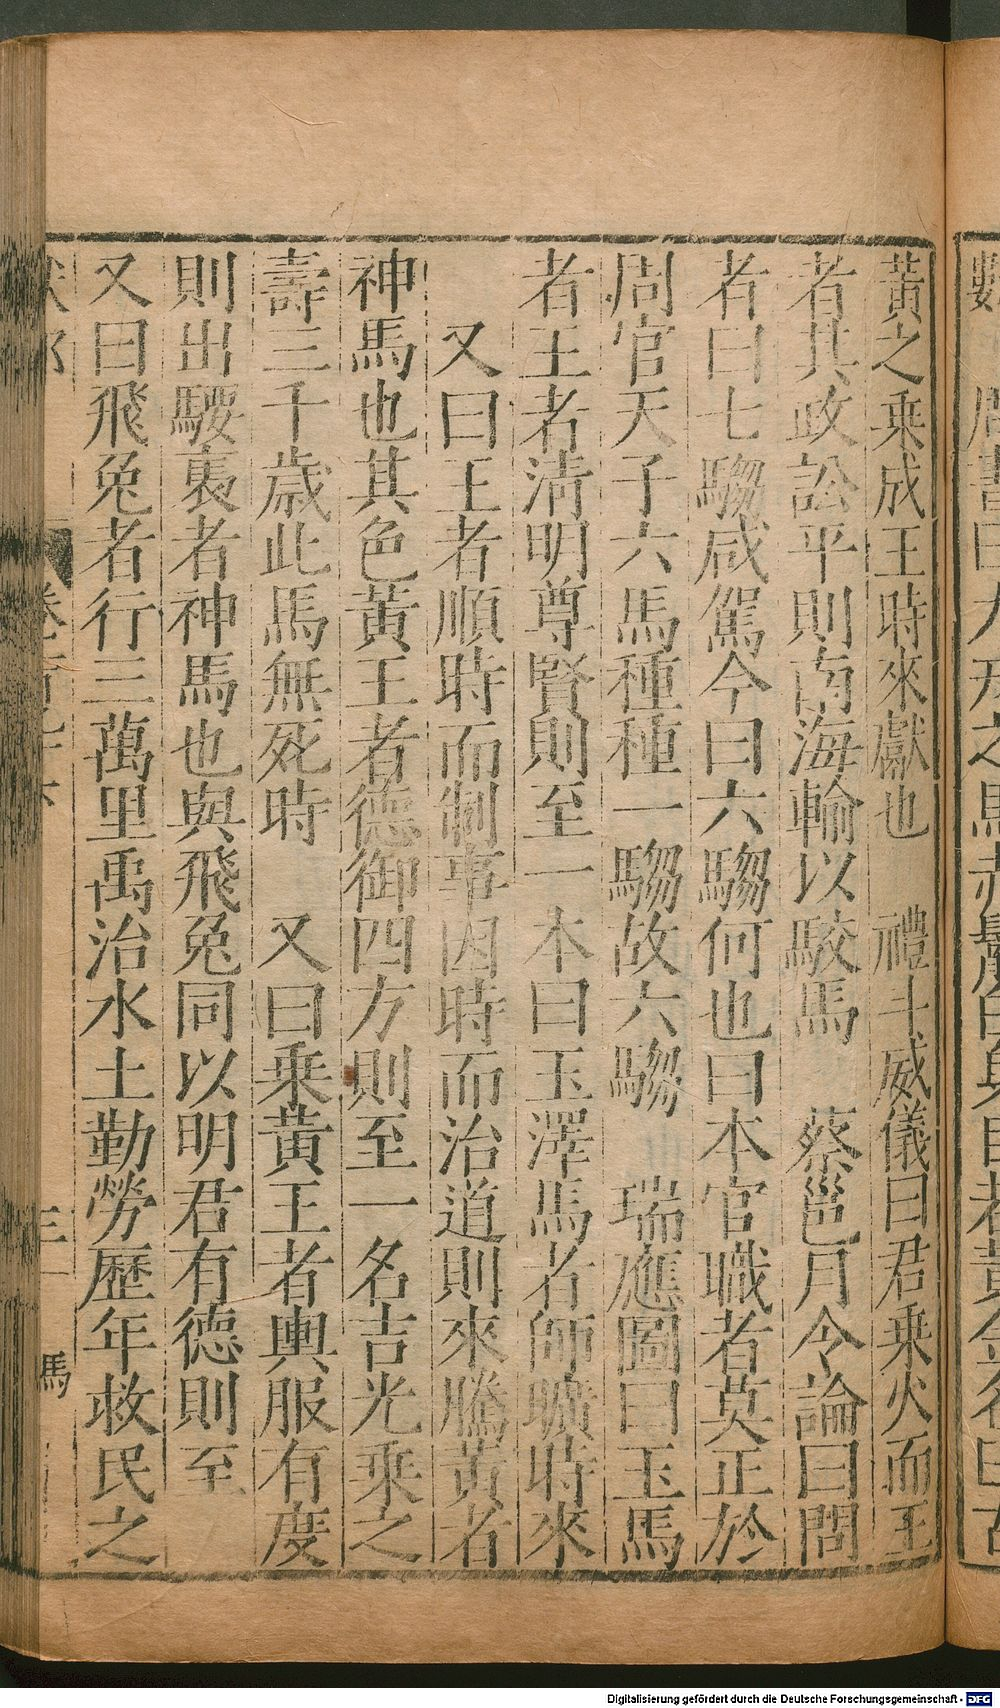 黃之乗成王時來獻也　禮斗威儀曰君乗火而王
者其政訟平則南海輸以駮馬　蔡邕月令論曰問
者曰七騶咸駕今曰六騶何也曰本官職者莫正於
周官天子六馬種種一騶故六騶　瑞應圖曰玉馬
者王者清明尊賢則至一本曰玉澤馬者師曠時來
又曰王者順時而制事因時而治道則來騰黃者
神馬也其色黃王者德御四方則至一名吉光乗之
壽三千歲此馬無死時　又曰乗黃王者輿服有度
則出騕褭者神馬也與飛兔同以明君有德則至
又曰飛兔者行三萬里禹治水土勤勞歷年救民之
馬
Digitalisierung gefördert durch die Deutsche Forschungsgemeinschaft - DFG